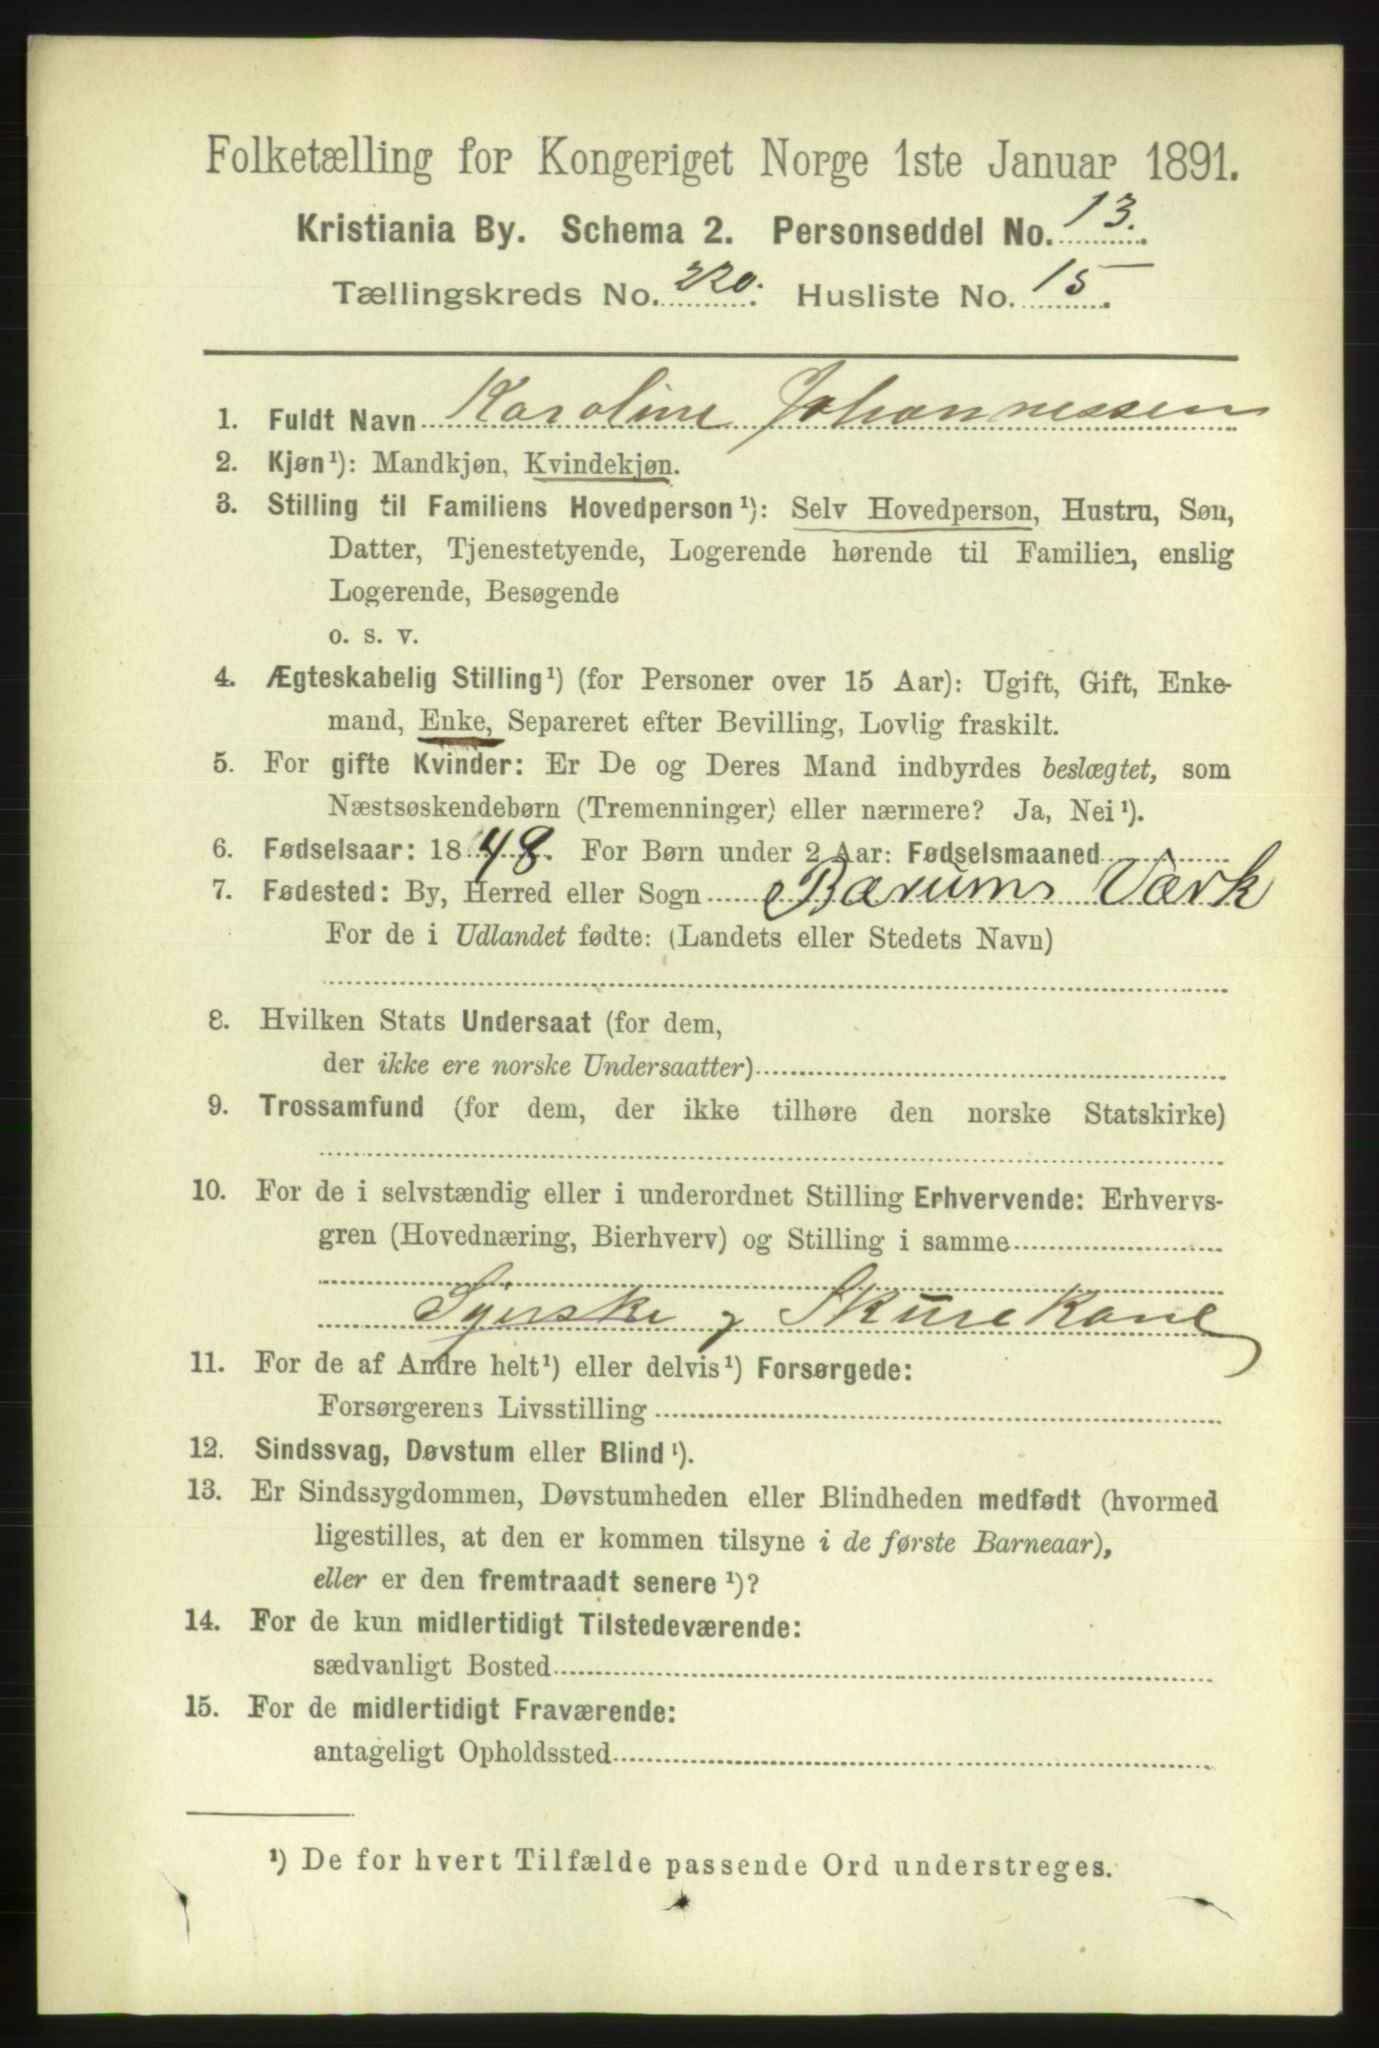 Folketælling for Kongeriget Norge 1ste Januar 1891.
Kristiania By. Schema 2. Personseddel No. 13.
Tællingskreds No. 220. Husliste No. 15.
1. Fuldt Navn Karoline Johannessen
2. Kjøn¹): Mandkjøn, Kvindekjøn.
3. Stilling til Familiens Hovedperson¹): Selv Hovedperson, Hustru, Søn,
Datter, Tjenestetyende, Logerende hørende til Familien, enslig
Logerende, Besøgende
o. s. v.
4. Ægteskabelig Stilling¹) (for Personer over 15 Aar): Ugift, Gift, Enke-
mand, Enke, Separeret efter Bevilling, Lovlig fraskilt.
5. For gifte Kvinder: Er De og Deres Mand indbyrdes beslægtet, som
Næstsøskendebørn (Tremenninger) eller nærmere? Ja, Nei¹).
6. Fødselsaar: 1848. For Børn under 2 Aar: Fødselsmaaned
7. Fødested: By, Herred eller Sogn Bærums Værk
For de i Udlandet fødte: (Landets eller Stedets Navn)
8. Hvilken Stats Undersaat (for dem,
der ikke ere norske Undersaatter)
9. Trossamfund (for dem, der ikke tilhøre den norske Statskirke)
10. For de i selvstændig eller i underordnet Stilling Erhvervende: Erhvervs-
gren (Hovednæring, Bierhverv) og Stilling i samme
Syerske og Skurekone
11. For de af Andre helt¹) eller delvis¹) Forsørgede:
Forsørgerens Livsstilling
12. Sindssvag, Døvstum eller Blind¹).
13. Er Sindssygdommen, Døvstumheden eller Blindheden medfødt (hvormed
ligestilles, at den er kommen tilsyne i de første Barneaar),
eller er den fremtraadt senere¹)?
14. For de kun midlertidigt Tilstedeværende:
sædvanligt Bosted
15. For de midlertidigt Fraværende:
antageligt Opholdssted
¹) De for hvert Tilfælde passende Ord understreges.